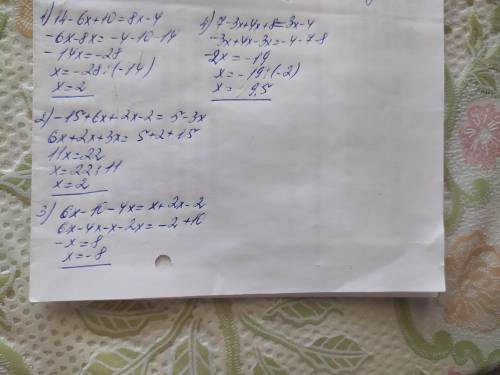 1) 14-6x+10=8x-4
-6x-8x=-4-10-14
-14x=-28
x=-28:(-14)
x=2
2) -15+6x+2x-2=5-3x
6x+2x+3x=5+2+15
11x=22
x=22:11
x=2
3) 6x-10-4x=x+2x-2
6x-4x-x-2x=-2+10
-x=8
x=-8
4) 7-3x+4x+8=3x-4
-3x+4x-3x=-4-7-8
-2x=-19
x=-19:(-2)
x=9,5